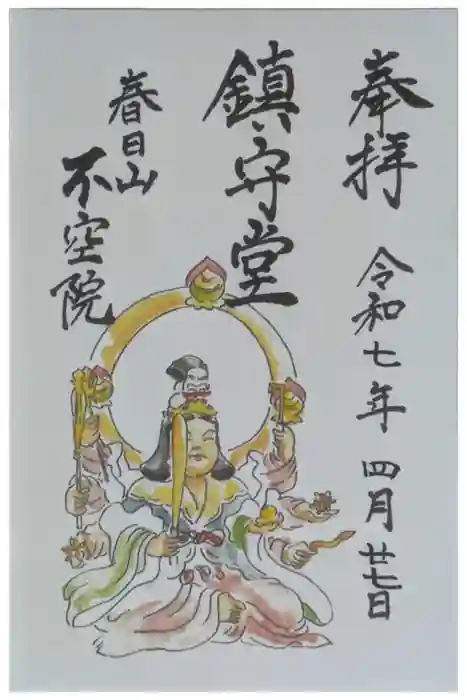 奉拝
令和七年 四月廿七日
鎮守堂
春日山
不空院